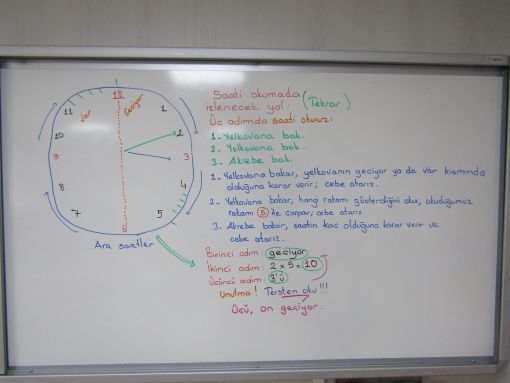 12
1
2
3
4
5
6
7
8
9
10
11
var
Geçiyor
Ara saatler
Saati okumada
izlenecek yol: (Tekrar)
Üç adımda saati okuruz:
1- Yelkovana bak.
2- Yelkovana bak.
3- Akrebe bak.
1- Yelkovana bakar, yelkovanın geçiyor ya da var kısmında
olduğuna karar verir; cebe atarız.
2- Yelkovana bakar, hangi rakamı gösterdiğini okur, okuduğumuz
rakamı 5 ile çarpar; cebe atarız.
3. Akrebe bakar, saatin kaç olduğuna karar verir ve
cebe atarız.
Birinci adım: geçiyor
İkinci adım: 2 x 5 = 10
Üçüncü adım: 3'ü
Unutma! Tersten oku!!!
Üçü, on geçiyor.